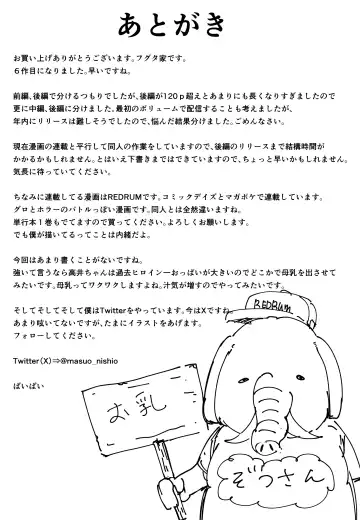 あとがき
お買い上げありがとうございます。フグタ家です。
６作目になりました。早いですね。
前編、後編で分けるつもりでしたが、後編が120ｐ超えとあまりにも長くなりすぎましたので
更に中編、後編に分けました、最初のボリュームで配信することも考えましたが、
年内にリリースは難しそうでしたので、悩んだ結果分けました。ごめんなさい。
現在漫画の連載と平行して同人の作業をしていますので、後編のリリースまで結構時間が
かかるかもしれません。とはいえ下書きまではできていますので、ちょっと早いかもしれません。
気長に待っていてください。
ちなみに連載してる漫画はREDRUMです。コミックデイズとマガポケで連載しています。
グロとホラーのバトルっぽい漫画です。同人とは全然違いますね。
単行本１巻もでてますので買ってください。よろしくお願いします。
でも僕が描いてるってことは内緒だよ。
今回はあまり書くことがないですね。
強いて言うなら高井ちゃんは過去ヒロイン一おっぱいが大きいのでどこかで母乳を出させて
みたいです。母乳ってワクワクしますよね。汁気が増すのでやってみたいです。
そしてそしてそして僕はTwitterをやっています。今はXですね。
あまり呟いてないですが、たまにイラストをあげます。
フォローしてください。
Twitter（X）⇒@masuo_nishio
ばいばい
REDRUM
お乳
ぞうさん